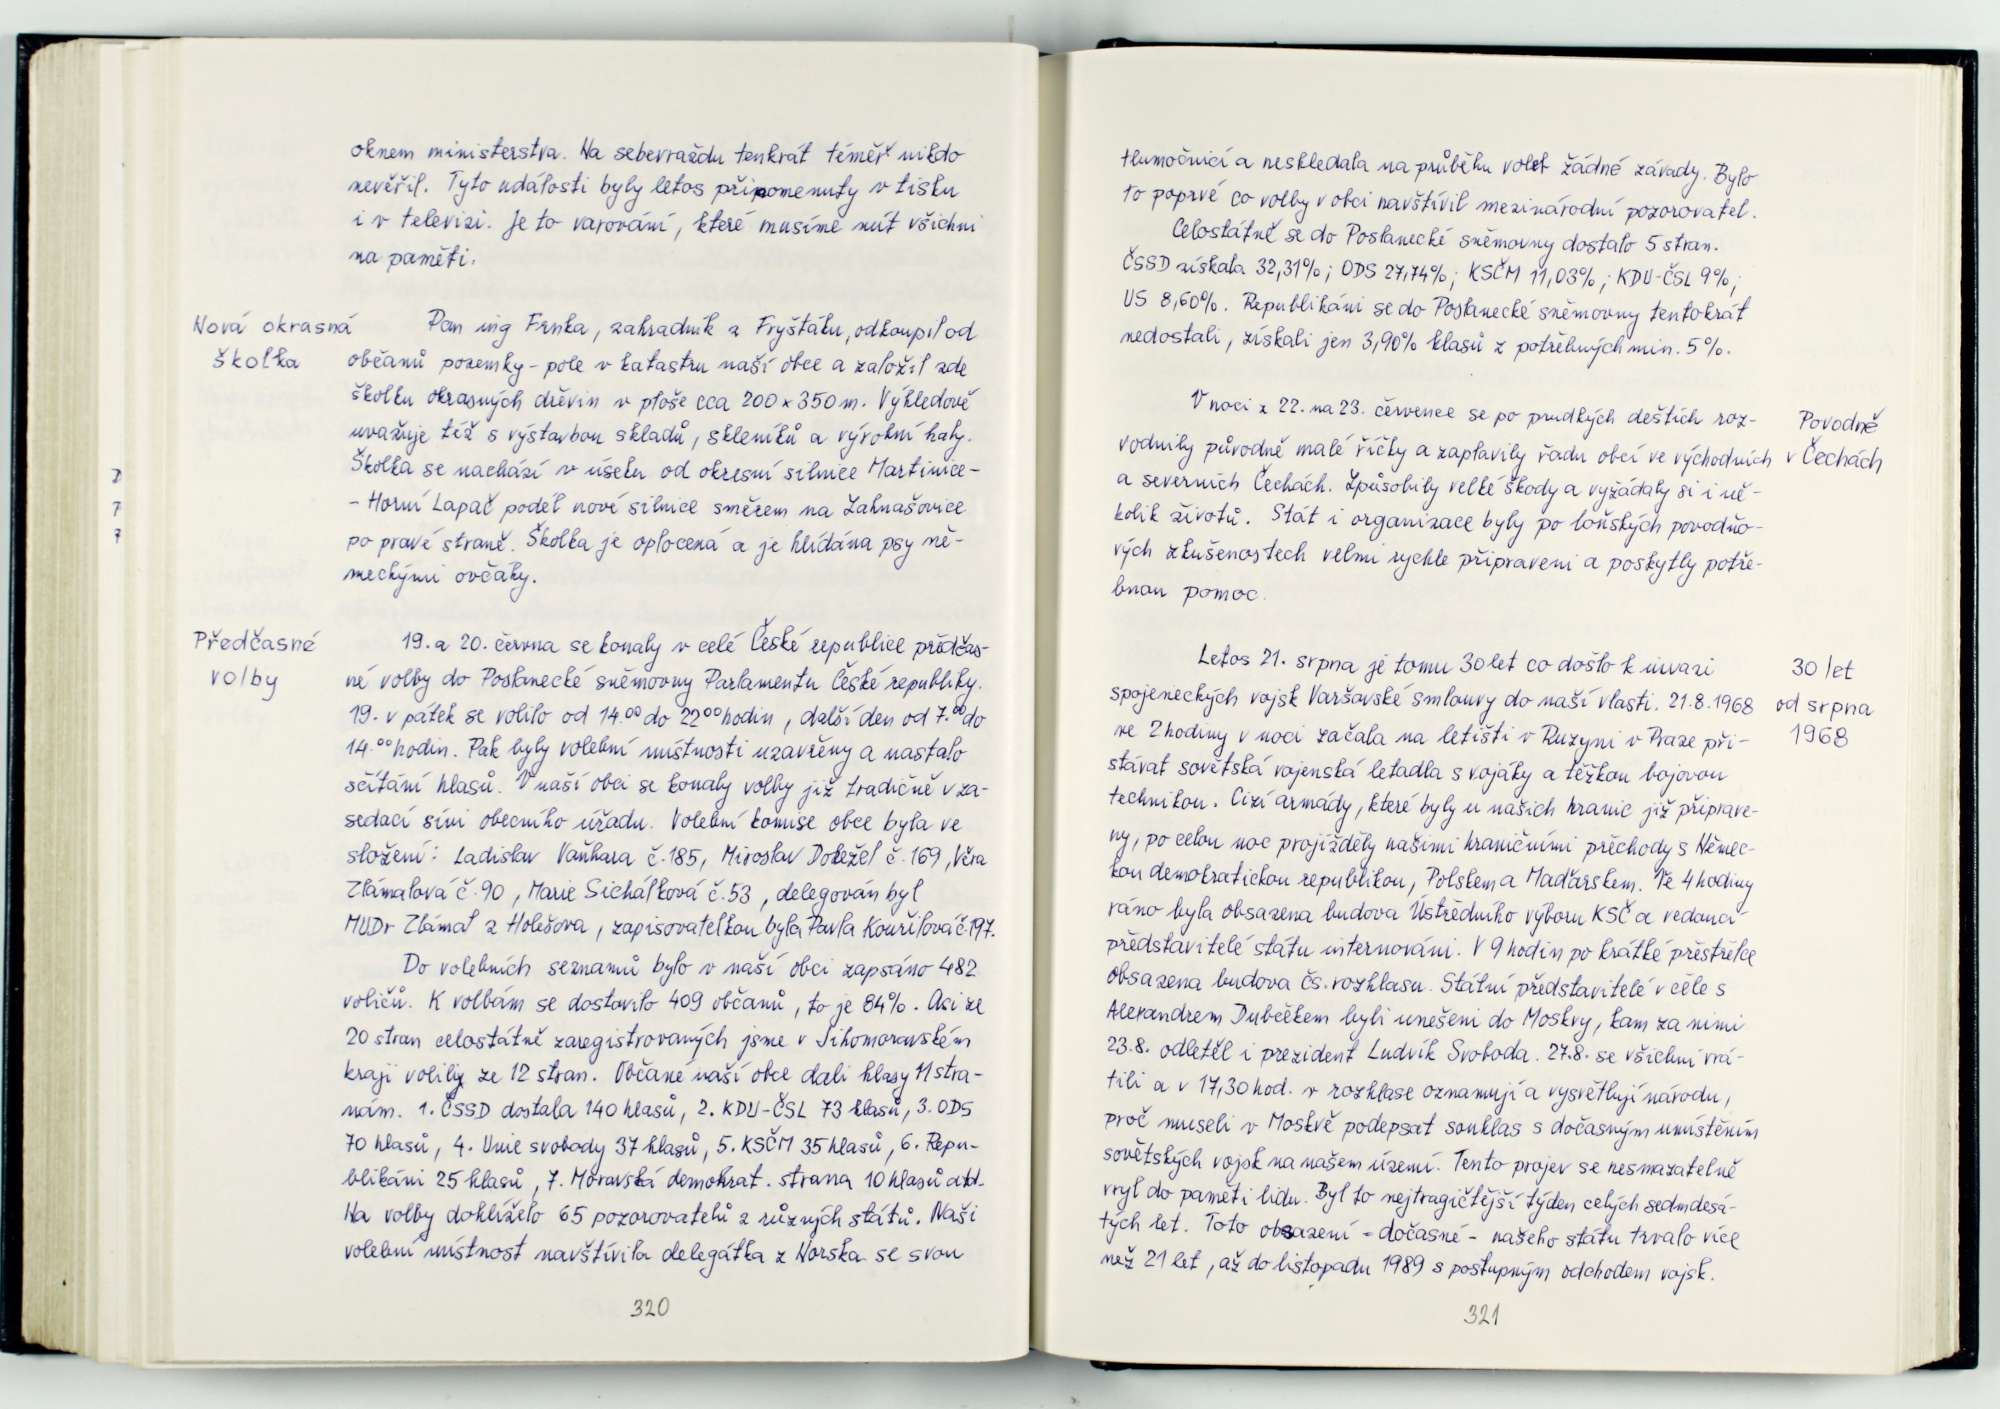 oknem ministerstva. Na sebevraždu tenkrát téměř nikdo
nevěřil. Tyto události byly letos připomenuty v tisku
i v televizi. Je to varování, které musíme mít všichni
na paměti.
Nová okrasná
školka
Pan ing Frnka, zahradník z Fryštáku, odkoupil od
občanů pozemky - pole v katastru naší obce a založil zde
školku okrasných dřevin v ploše cca 200 x 350 m. Výhledově
uvažuje též s výstavbou skladů, skleníků a výrobní haly.
Školka se nachází v úseku od okresní silnice Martinice-
- Horní Lapač podél nové silnice směrem na Zahnašovice
po pravé straně. Školka je oplocená a je hlídána psy ně-
meckými ovčáky.
Předčasné
volby
19. a 20. června se konaly v celé České republice předčas-
né volby do Poslanecké sněmovny Parlamentu České republiky.
19. v pátek se volilo od 14.00 do 22 00 hodin, další den od 7.00 do
14.00 hodin. Pak byly volební místnosti uzavřeny a nastalo
sčítání hlasů. V naší obci se konaly volby již tradičně v za-
sedací síni obecního úřadu. Volební komise obce byla ve
složení: Ladislav Vaňhara č.185, Miroslav Doležel č.169, Věra
Zlámalová č.90, Marie Sichálková č.53, delegován byl
MUDr Zlámal z Holešova, zapisovatelkou byla Pavla Kouřilová č.197.
Do volebních seznamů bylo v naší obci zapsáno 482
voličů. K volbám se dostavilo 409 občanů, to je 84%. Asi ze
20 stran celostátně zaregistrovaných jsme v Jihomoravském
kraji volily ze 12 stran. Občané naší obce dali hlasy 11 stra-
nám. 1. ČSSD dostala 140 hlasů, 2. KDU-ČSL 73 hlasů, 3. ODS
70 hlasů, 4. Unie svobody 37 hlasů, 5. KSČM 35 hlasů, 6. Repu-
blikáni 25 hlasů, 7. Moravská demokrat. strana 10 hlasů atd.
Na volby dohlíželo 65 pozorovatelů z různých států. Naši
volební místnost navštívila delegátka z Norska se svou
320
tlumočnicí a neshledala na průběhu voleb žádné závady. Bylo
to poprvé co volby v obci navštívil mezinárodní pozorovatel.
Celostátně se do Poslanecké sněmovny dostalo 5 stran.
ČSSD získala 32,31%; ODS 27,74%; KSČM 11,03%; KDU-ČSL 9%;
US 8,60%. Republikáni se do Poslanecké sněmovny tentokrát
nedostali, získali jen 3,90% hlasů z potřebných min. 5%.
V noci z 22. na 23. července se po prudkých deštích roz-
vodnily původně malé říčky a zaplavily řadu obcí ve východních
a severních Čechách. Způsobily velké škody a vyžádaly si i ně-
kolik životů. Stát i organizace byly po loňských povodňo-
vých zkušenostech velmi rychle připraveni a poskytly potře-
bnou pomoc.
Povodně
v Čechách
Letos 21. srpna je tomu 30 let co došlo k invazi
spojeneckých vojsk Varšavské smlouvy do naší vlasti. 21.8.1968
ve 2 hodiny v noci začala na letišti v Ruzyni v Praze při-
stávat sovětská vojenská letadla s vojáky a těžkou bojovou
technikou. Cizí armády, které byly u našich hranic již připrave-
ny, po celou noc projížděly našimi hraničními přechody s Němec-
kou demokratickou republikou, Polskem a Maďarskem. Ve 4 hodiny
ráno byla obsazena budova Ústředního výboru KSČ a vedoucí
představitelé státu internováni. V 9 hodin po krátké přestřelce
obsazena budova čs. rozhlasu. Státní představitelé v čele s
Alexandrem Dubčekem byli unešeni do Moskvy, kam za nimi
23.8. odletěl i prezident Ludvík Svoboda. 27.8. se všichni vrá-
tili a v 17,30 hod. v rozhlase oznamují a vysvětlují národu,
proč museli v Moskvě podepsat souhlas s dočasným umístěním
sovětských vojsk na našem území. Tento projev se nesmazatelně
vryl do paměti lidu. Byl to nejtragičtější týden celých sedmdesá-
tých let. Toto obsazení - dočasné - našeho státu trvalo více
než 21 let, až do listopadu 1989 s postupným odchodem vojsk.
30 let
od srpna
1968
321